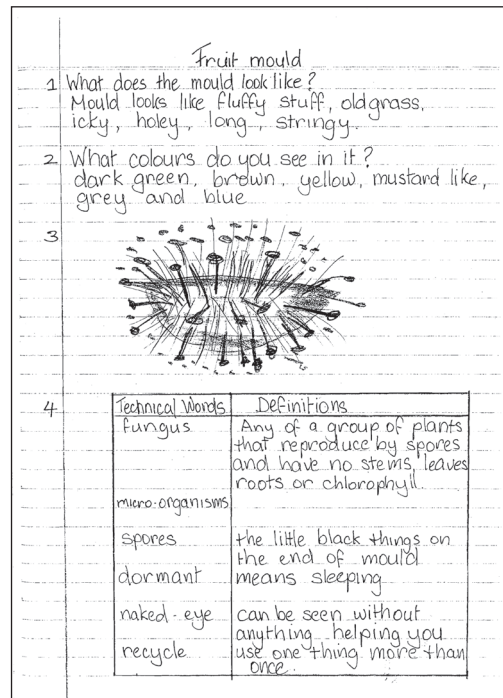 Fruit mould
1 What does the mould look like?
Mould looks like fluffy stuff, old grass,
icky, holey, long, stringy.
2 What colours do you see in it?
dark green, brown, yellow, mustard like,
grey and blue
3
4
Technical Words Definitions
fungus Any of a group of plants
that reproduce by spores
and have no stems, leaves
roots or chlorophyll.
micro-organisms
spores the little black things on
the end of mould
dormant means sleeping
naked-eye can be seen without
anything helping you
recycle use one thing more than
once.